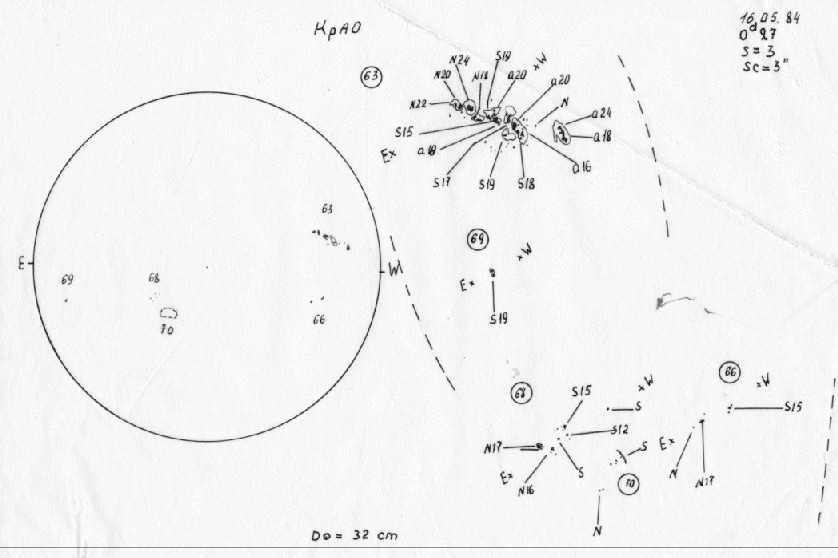 КрАО
16.05.84
0ᵈ27
S = 3
Sc = 3"
63
N24
S19
×W
N20
N18
a20
a20
N22
N
a24
S15
a18
a18
E×
a16
S17
S19
S18
63
E
W
69
68
70
66
69
×W
E×
S19
68
S15
×W
S
S12
N17
S
E×
N16
S
70
N
66
×W
S15
E×
N
N17
D⊙ = 32 cm